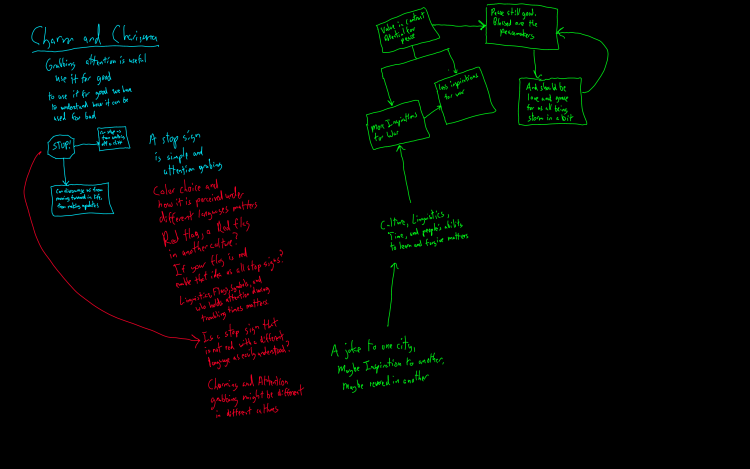 Charm and Charisma
Grabbing attention is useful
use it for good
to use it for good we have
to understand how it can be
used for bad
STOP!
Can stop us
from walking
off a cliff
Can discourage us from
moving forward in life,
from making updates
A stop sign
is simple and
attention grabing
Color choice and
how it is perceived under
different languages matters
Red flag, a Red flag
in another culture?
If your flag is red
make that idea as all stop signs?
Linguistics, Flags, Symbols, and
who holds attention during
troubling times matters
Is a stop sign that
is not red with a different
language as easily understood?
Charming and Attention
grabbing might be different
in different cultures
Value in
Potential for
peace
Peace still good.
Blessed are the
Peacemakers
less inspirations
for war
More Inspirations
for War
And should be
love and grace
for us all being
storm in a bit
Culture, Linguistics,
Time, and people's ability
to learn and forgive matters
A joke to one city,
Maybe Inspiration to another,
maybe in another